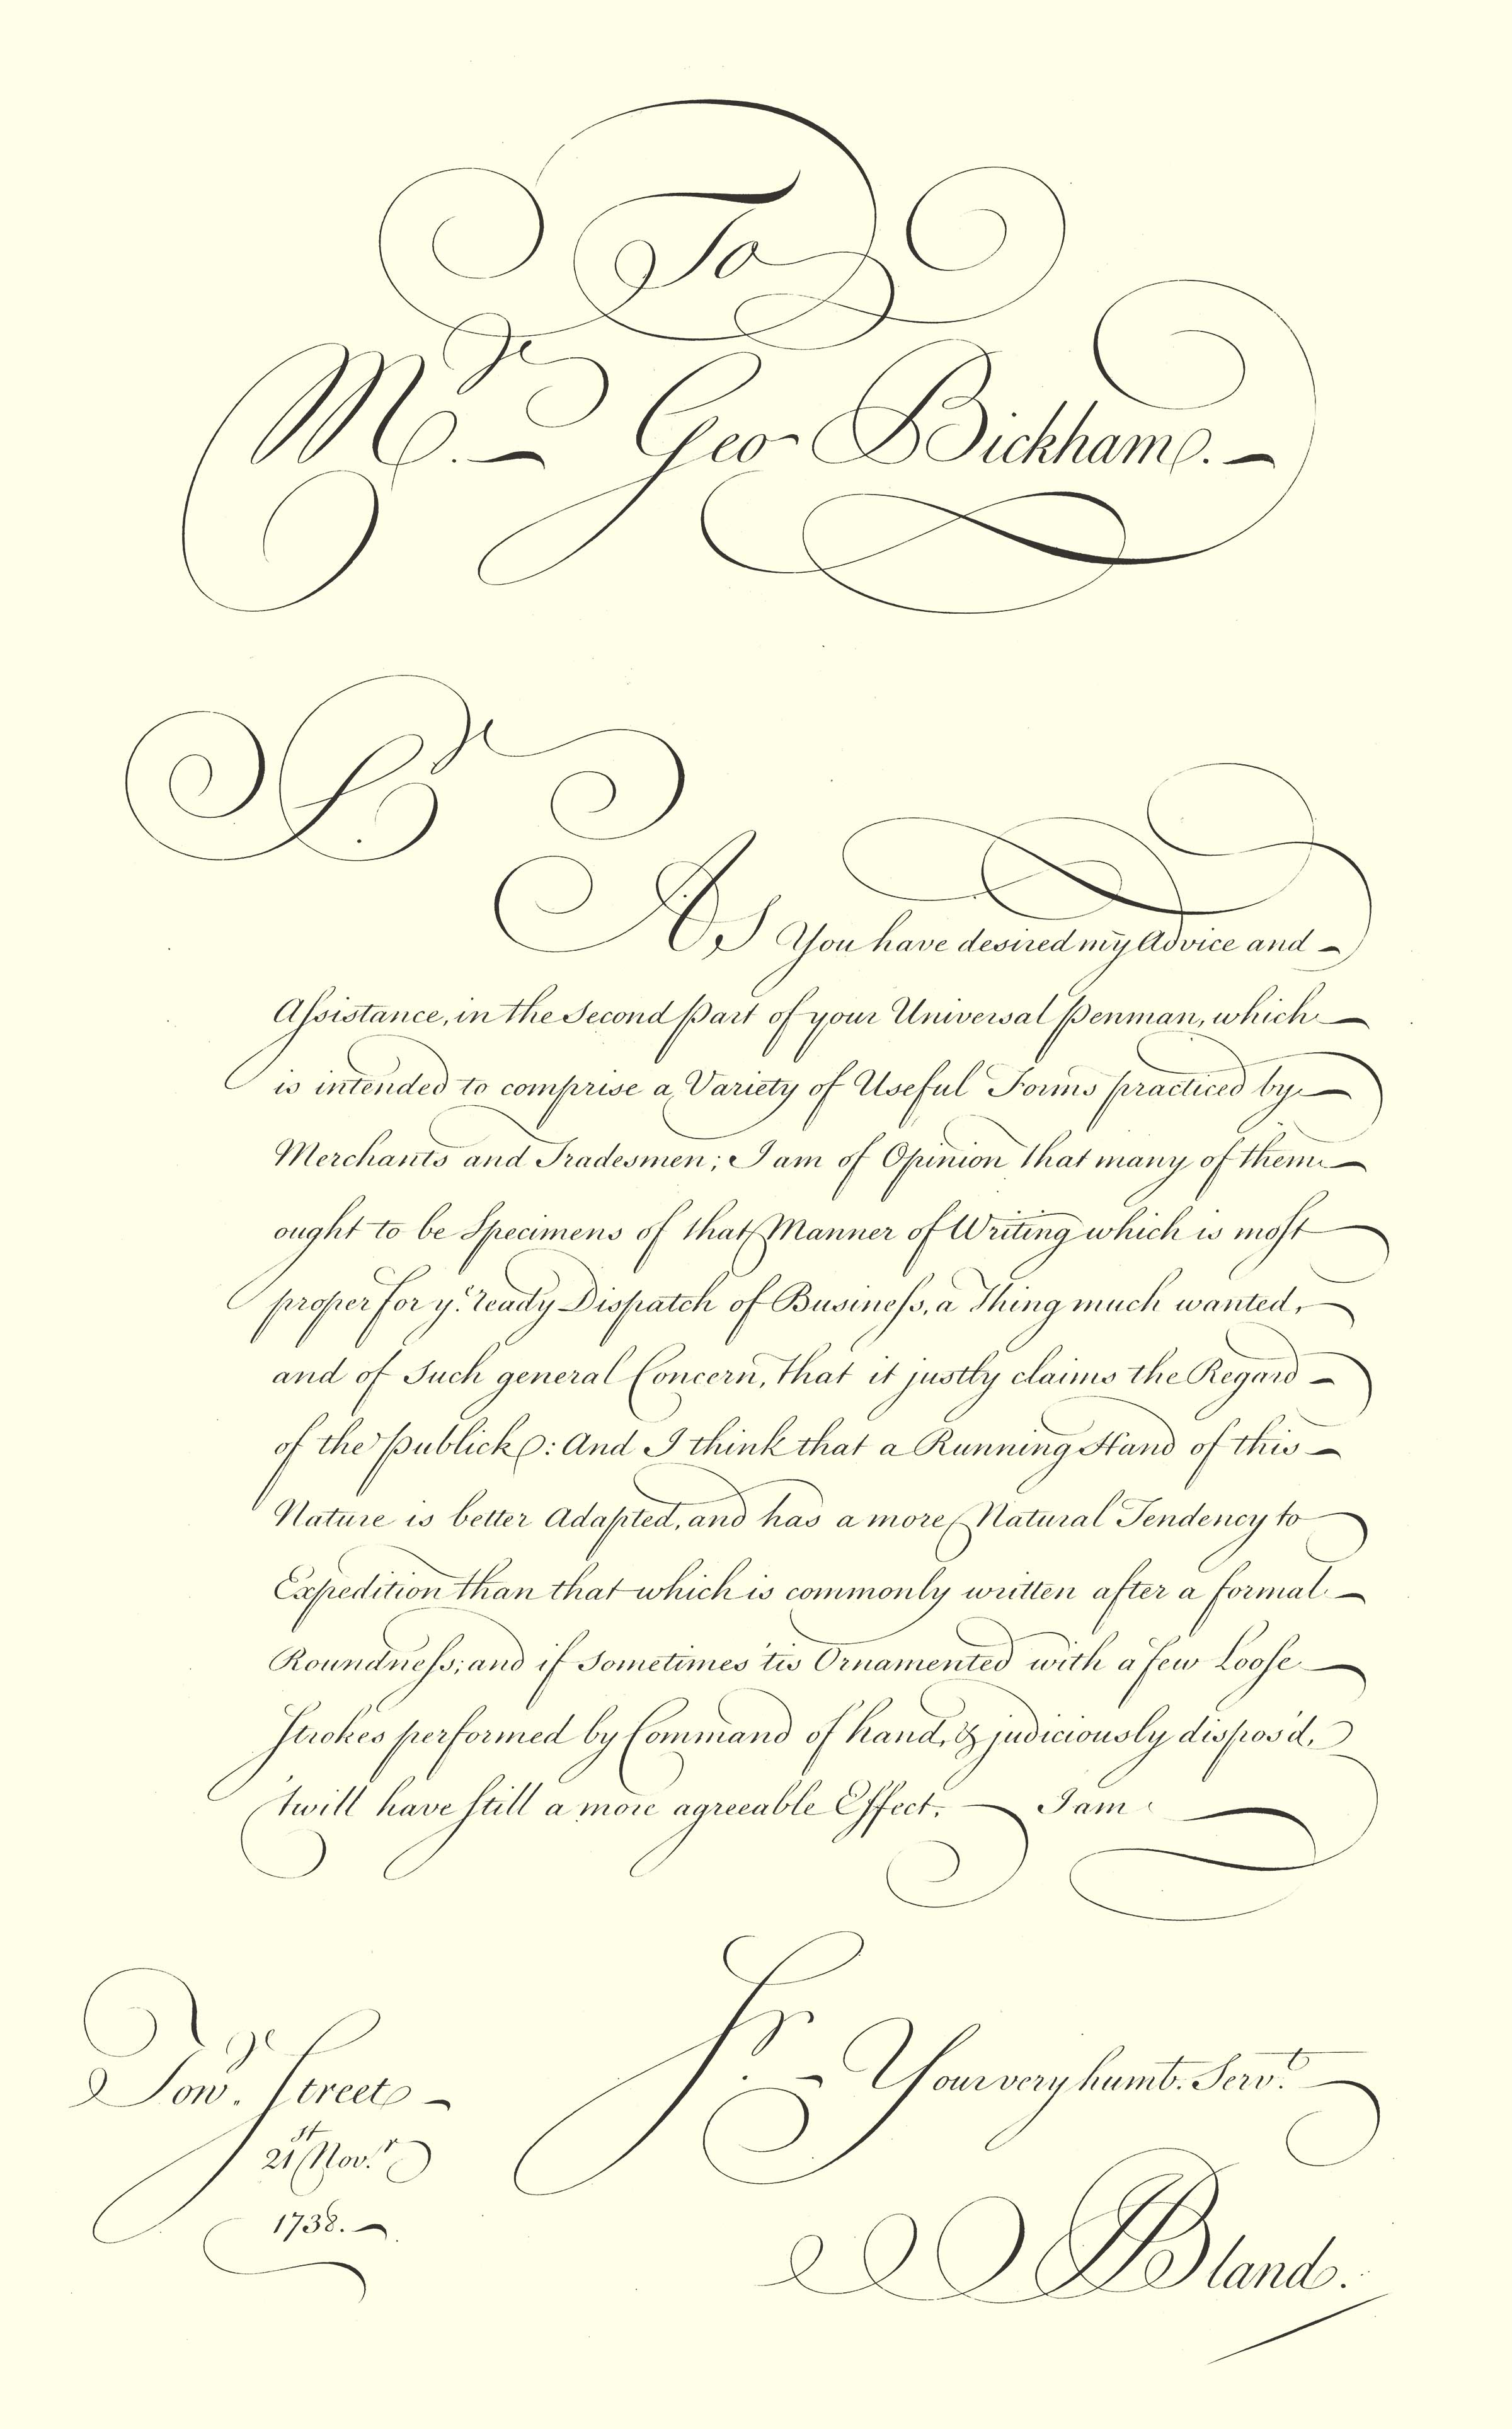 To
Mr. Geo Bickham.
Sr.
As You have desired my Advice and
Aſsistance, in the Second Part of your Universal Penman, which
is intended to comprise a Variety of Useful Forms practiced by
Merchants and Tradesmen; I am of Opinion that many of them
ought to be Specimens of that Manner of Writing which is moſt
proper for ye. ready Dispatch of Busineſs, a Thing much wanted,
and of Such general Concern, that it justly claims the Regard
of the Publick: And I think that a Running Hand of this
Nature is better Adapted, and has a more Natural Tendency to
Expedition than that which is commonly written after a formal
Roundneſs; and if Sometimes 'tis Ornamented with a few Looſe
Strokes performed by Command of hand, & judiciously dispos'd,
'twill have ſtill a more agreeable Effect. I am
Sr. Your very humb. Servt.
Towr. Street
21st Novr.
1738.
Bland.